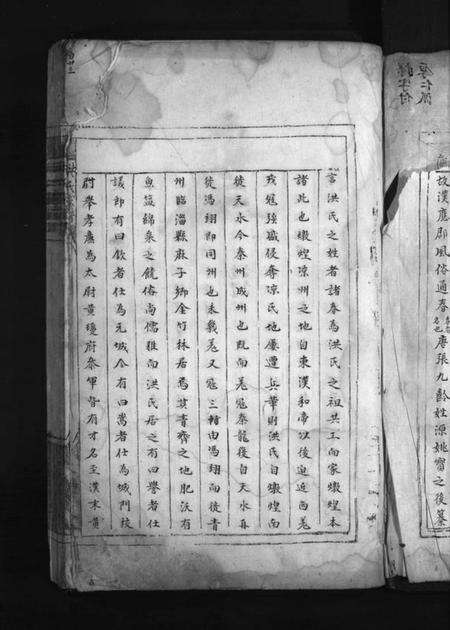 故漢應邵風俗通春唐張九齡姓源姚甯之後纂
言洪氏之姓者諸春為洪氏之祖共工而家燉煌本
諸此也燉煌涼州之地自東漢和帝以後迫近西羌
戎寇強盛侵奪涼氏地屢遭兵革則洪氏自燉煌而
徙天水今秦州成州也既而羌寇秦隴後自天水再
徙馮翊即同州也未幾羌又寇三輔由馮翊而徙青
州臨淄縣麻子鄉金竹林居焉其青齊之地肥沃有
魚鹽綿桑之饒俗尚儒雅而洪氏居之有曰譽者仕
議即有曰欽者仕為元城令有曰嵩者仕為城門校
尉舉孝廉為太尉黃瓊府參軍皆有才名至漢末黃